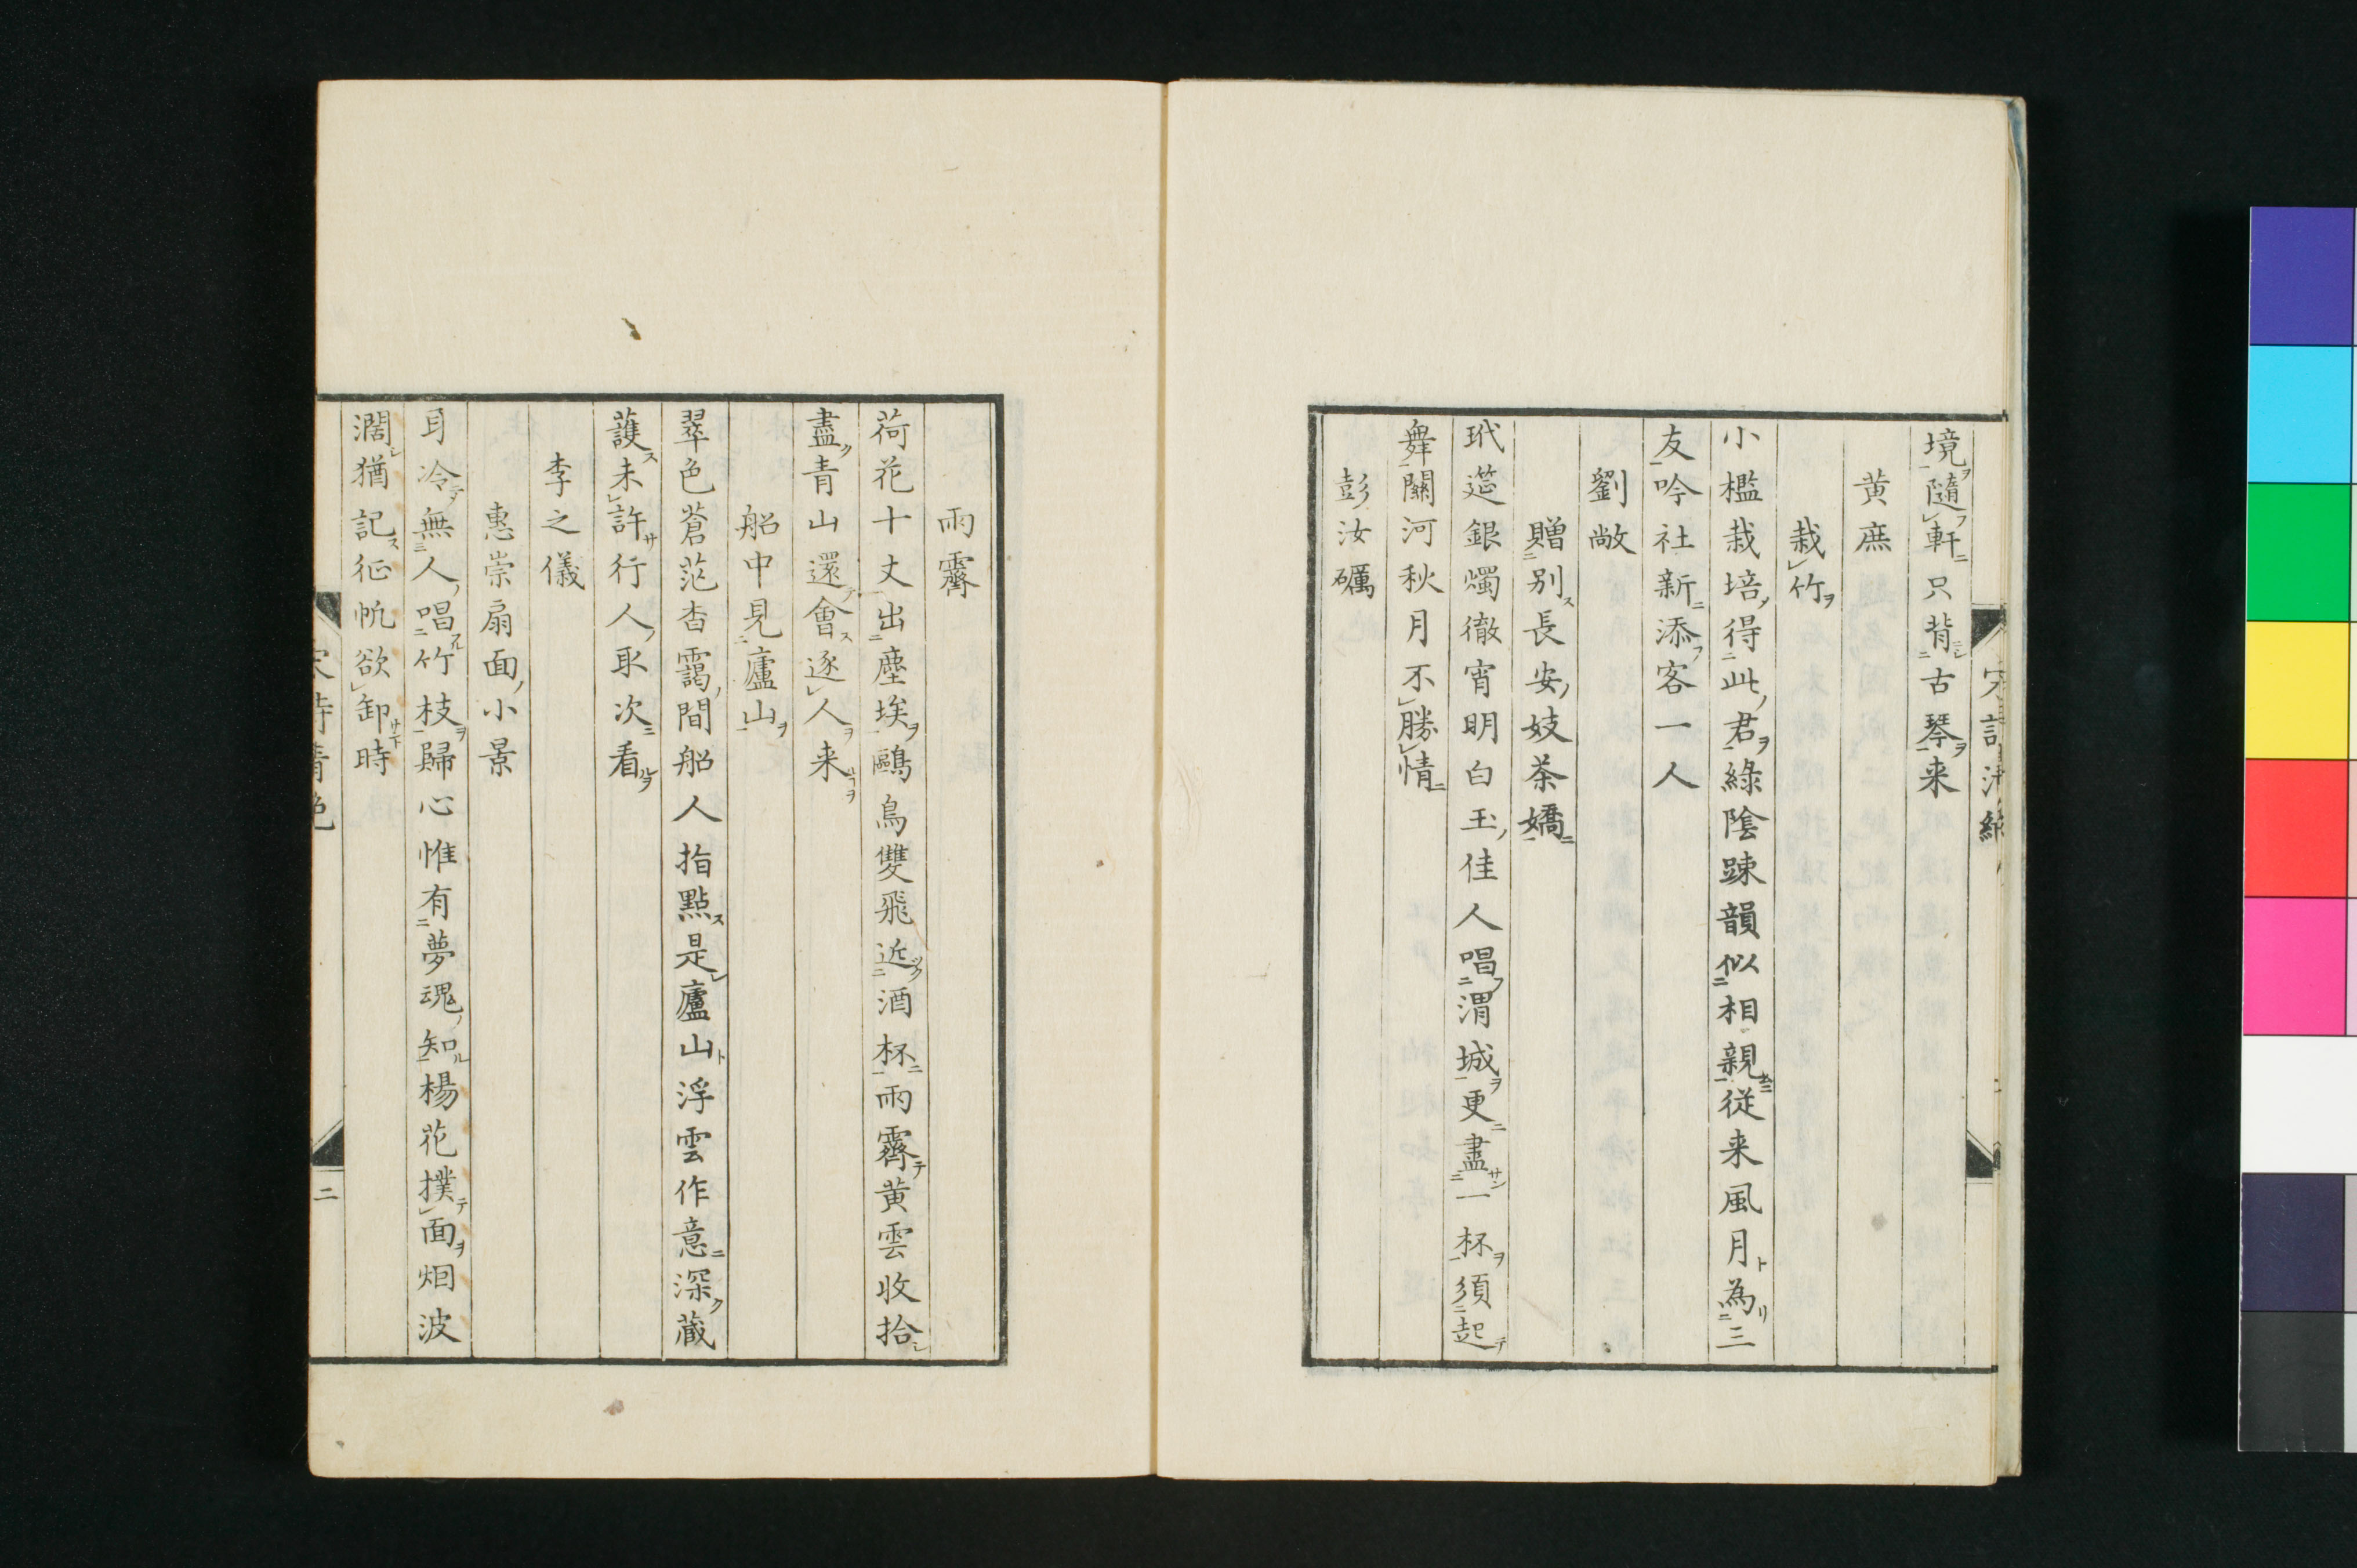 境隨軒只背古琴来
黄庶
栽竹
小檻栽培得此君綠陰踈韻似相親従来風月為三
友吟社新添客一人
劉敞
贈别長安妓茶嬌
玳筵銀燭徹宵明白玉佳人唱渭城更盡一杯須起
舞關河秋月不勝情
彭汝礪
雨霽
荷花十丈出塵埃鷗鳥雙飛近酒杯雨霽黄雲收拾
盡青山還會逐人来
船中見廬山
翠色蒼茫杳靄間船人指點是廬山浮雲作意深蔵
護未許行人取次看
李之儀
惠崇扇面小景
耳冷無人唱竹枝歸心惟有夢魂知楊花撲面烟波
濶猶記征帆欲卸時
二